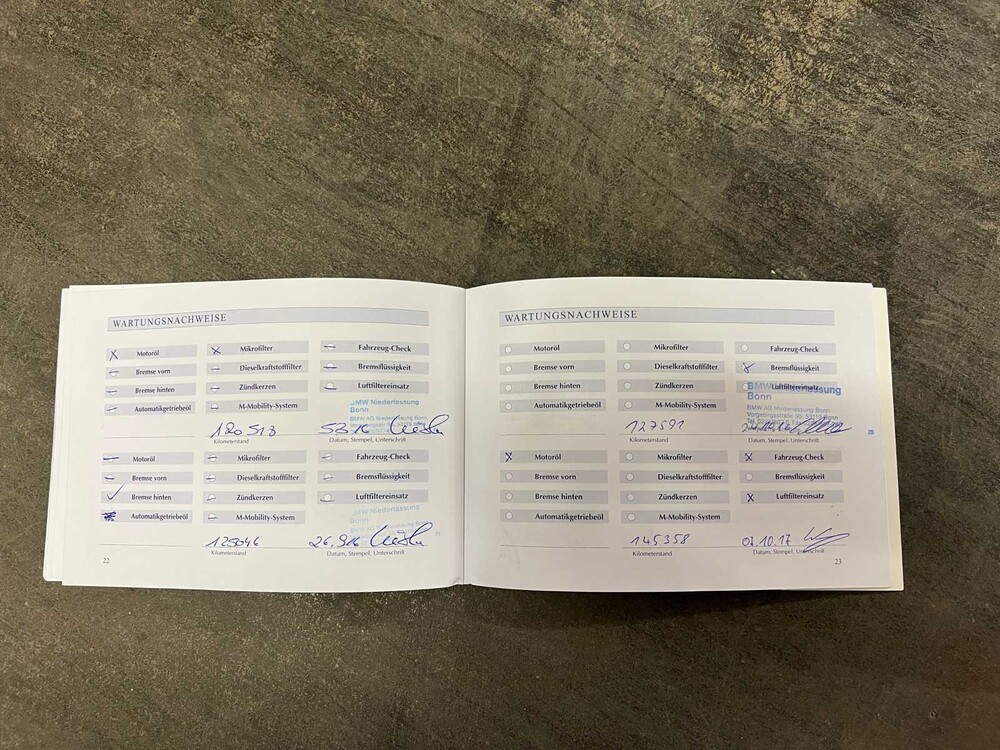 WARTUNGSNACHWEISE
Motoröl Mikrofilter Fahrzeug-Check
Bremse vorn Dieselkraftstofffilter Bremsflüssigkeit
Bremse hinten Zündkerzen Luftfiltereinsatz
Automatikgetriebeöl M-Mobility-System
BMW Niederlassung
Bonn
BMW AG Niederlassung Bonn
120 513
Kilometerstand Datum, Stempel, Unterschrift
Motoröl Mikrofilter Fahrzeug-Check
Bremse vorn Dieselkraftstofffilter Bremsflüssigkeit
Bremse hinten Zündkerzen Luftfiltereinsatz
Automatikgetriebeöl M-Mobility-System
Niederlassung
Bonn
125046 26.9.16
Kilometerstand Datum, Stempel, Unterschrift
22
WARTUNGSNACHWEISE
Motoröl Mikrofilter Fahrzeug-Check
Bremse vorn Dieselkraftstofffilter Bremsflüssigkeit
Bremse hinten Zündkerzen Luftfiltereinsatz
Automatikgetriebeöl M-Mobility-System
BMW Niederlassung
Bonn
BMW AG Niederlassung Bonn
127591
Kilometerstand Datum, Stempel, Unterschrift
Motoröl Mikrofilter Fahrzeug-Check
Bremse vorn Dieselkraftstofffilter Bremsflüssigkeit
Bremse hinten Zündkerzen Luftfiltereinsatz
Automatikgetriebeöl M-Mobility-System
145358
Kilometerstand Datum, Stempel, Unterschrift
23